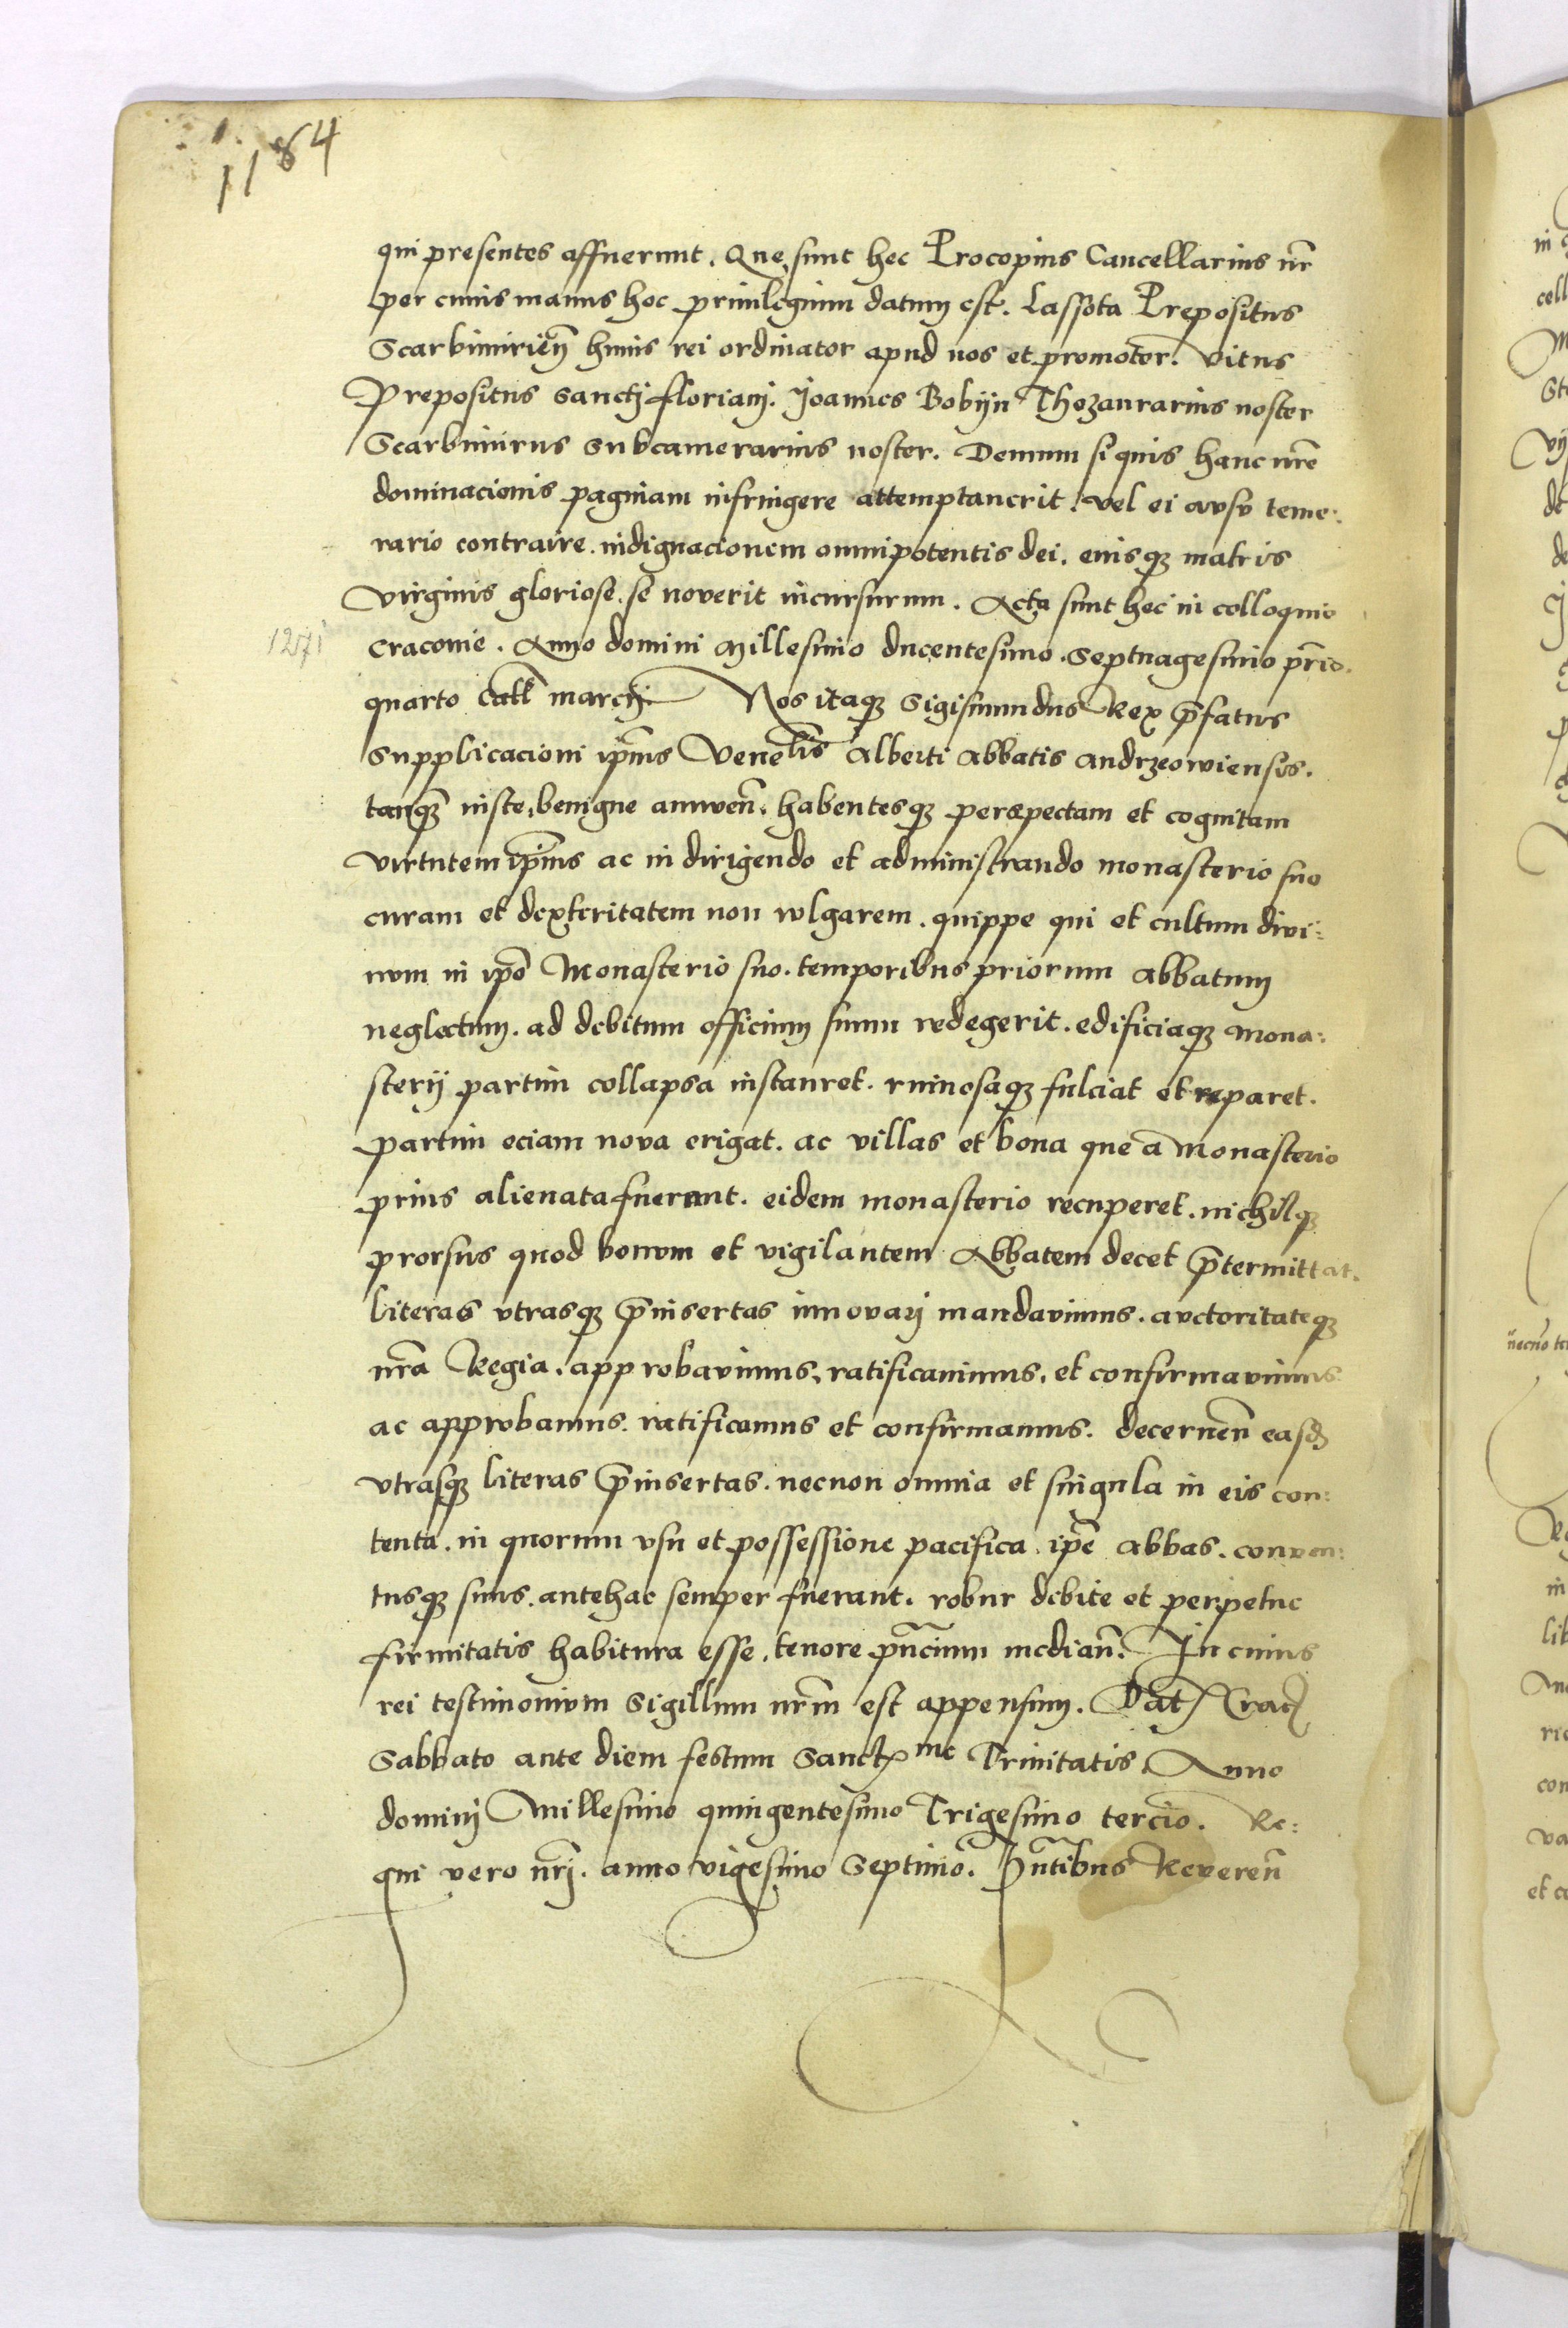 1184
qui presentes affuerunt. Que sunt hec Procopius Cancellarius nr̄
per cuius manus hoc priuilegium datum est. Lassota Prepositus
Scarbimirien̄ huius rei ordinator apud nos et promotor. Vitus
Prepositus sanctj floriani. Joannes Bobijn Thezaurarius noster
Scarbimirus Subcamerarius noster. Demum si quis hanc nrē
dominacionis paginam infringere attemptauerit, vel ei avsv teme:
rario contraire. indignacionem omnipotentis dei. eiusqꝫ matris
virginis gloriose. se noverit incursurum. Acta sunt hec in colloquio
1271
Cracouie. Anno domini Millesimo ducentesimo. septuagesimo prīo.
quarto Call̄ marcij. Nos itaqꝫ Sigismundus Rex p̄fatus
Supplicacioni ip̄ius Venelis̄ Alberti Abbatis Andrzeowiensis.
tanqꝫ iuste, benigne annuen̄. habentesqꝫ perspectam et cognitam
virtutem ip̄ius ac in dirigendo et administrando monasterio suo
curam et dexteritatem non vulgarem. quippe qui et cultum divi:
num in ip̄o Monasterio suo. temporibus priorum abbatum
neglectum. ad debitum officium suum redegerit. edificiaqꝫ mona:
sterij partim collapsa instauret. ruinosaqꝫ fulciat et reparet.
partim eciam nova erigat. ac villas et bona que a Monasterio
prius alienata fuerunt. eidem monasterio recuperet. nichilqꝫ
prorsus quod bonum et vigilantem Abbatem decet p̄termittat.
literas vtrasqꝫ p̄insertas innovarj mandavimus. avctoritateqꝫ
nrā Regia. approbavimus, ratificauimus, et confirmavimus
ac approbamus. ratificamus et confirmamus. decernen̄ easd̄
vtrasqꝫ literas p̄insertas. necnon omnia et singula in eis con:
tenta. in quorum vsu et possessione pacifica. ip̄e abbas. conven:
tusqꝫ suus. antehac semper fuerant. robur debite et perpetue
firmitatis habitura esse, tenore pn̄cium median̄. In cuius
rei testimonium Sigillum nrm̄ est appensum. Dat Crac
Sabbato ante diem festum Sanctme Trinitatis Anno
dominj Millesimo quingentesimo Trigesimo tercio. Re:
gni vero nrj̄. anno vigesimo Septimo. Pn̄tibus Reveren̄